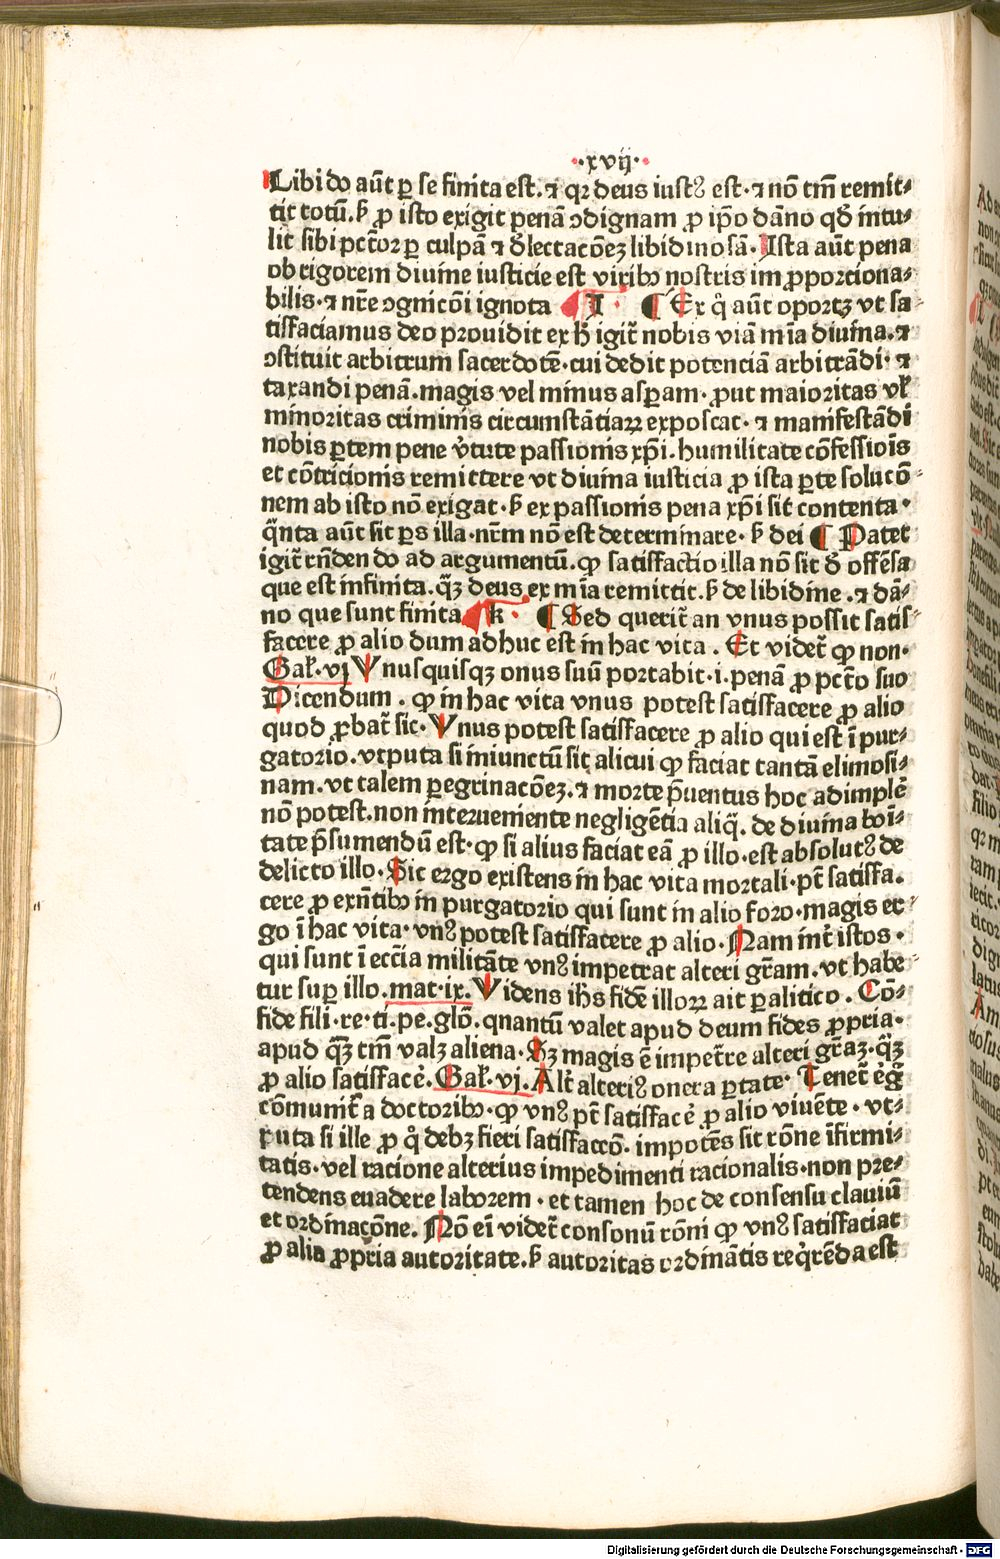 ·xvij·
Libido aūt ꝑ se finita est. ⁊ qꝛ deus iustꝰ est·⁊ nō tm̄ remit⸗
tit totū. ẜ ꝓ isto exigit penā ꝯdignam ꝓ ip̄o dāno qḋ intu⸗
lit sibi pctōꝛ ꝑ culpā ⁊ ḋlectacōeꝫ libidinosā. Ista aūt pena
ob rigorem diuine iusticie est viribꝰ nostris impꝓpoꝛciona⸗
bilis·⁊ nr̄e ꝯgnicōi ignota ¶ I · ¶ Ex q̊ aūt opoꝛtꝫ vt sa
tisfaciamus deo prouidit ex h̄ igit̄ nobis viā mīa diuina.⁊
ꝯstituit arbitrum sacerdotē·cui dedit potenciā arbitrādi·⁊
taxandi penā.magis vel minus asꝑam·ꝓut maioꝛitas vł
minoꝛitas criminis circumstātiaꝝ exposcat·⁊ manifestādi
nobis ꝑtem pene v̓tute passionis xp̄i.humilitate cōfessiois̄
et cōtricionis remittere vt diuina iusticia ꝓ ista ꝑte solucō⸗
nem ab isto nō exigat·ẜ ex passionis pena xp̄i sit contenta·
q̄nta aūt sit ꝑs illa·nr̄m nō est determinare·ẜ dei ¶ Patet
igit̄ rn̄dendo ad argumentū.ꝙ satisfactio illa nō sit ḋ offēsa
que est infinita.q̄ꝫ deus ex mīa remittit.ẜ de libidine.⁊ dā⸗
no que sunt finita ¶ k · ¶ Sed querit̄ an vnus possit satis⸗
facere ꝓ alio dum adhuc est in hac vita. Et videt̄ ꝙ non·
Gał.vj Vnusquisqꝫ onus suū poꝛtabit·i.penā ꝓ pctō suo
Dicendum. ꝙ in hac vita vnus potest satisfacere ꝓ alio
quod ꝓbat̄ sic·Vnus potest satisfacere ꝓ alio qui est ī pur⸗
gatoꝛio.vtputa si iniunctū sit alicui ꝙ faciat tantā elimosi⸗
nam.vt talem ꝑegrinacōeꝫ.⁊ moꝛte p̄uentus hoc adimplē
nō potest.non interueniente negligētia aliq̄. de diuina boī⸗
tate p̄sumendū est·ꝙ si alius faciat eā ꝓ illo.est absolutꝰ de
delicto illo·Sic ergo existens in hac vita moꝛtali·pt̄ satisfa.
cere ꝓ exn̄tibꝰ in purgatoꝛio qui sunt in alio foꝛo·magis er⸗
go ī hac vita·vnꝰ potest satisfacere ꝓ alio.Nam int̄ istos·
qui sunt ī eccīa militāte vnꝰ impetrat alteri gr̄am.vt habe⸗
tur suꝑ illo.mat·ix.Videns ih̄s fidē illoꝝ ait ꝑalitico. Cō⸗
fide fili·re·ti.pe.glō.qnantū valet apud deum fides ꝓpria·
apud q̄ꝫ tm̄ valꝫ aliena·Sꝫ magis ē impet̄re alteri gr̄aꝫ·q̄ꝫ
ꝓ alio satisfacē.Gał.vj.Alt̄ alteriꝰ onera ꝑtate·Tenet̄ ēg̊
cōmunit̄ a doctoribꝰ·ꝙ vnꝰ pt̄ satisfacē ꝓ alio viuēte·vt⸗
puta si ille ꝓ q̊ debꝫ fieri satisfaccō·impotēs sit rōne īfirmi⸗
tatis·vel racione alterius impedimenti racionalis·non pre⸗
tendens euadere laboꝛem·et tamen hoc de consensu clauiū
et oꝛdinacōne. Nō eī videt̄ consonū rōni ꝙ vnꝰ satisfaciat
ꝓ alia ꝓpria autoꝛitate.ẜ autoꝛitas oꝛdinātis req̊rēda est
Digitalisierung gefördert durch die Deutsche Forschungsgemeinschaft - DFG